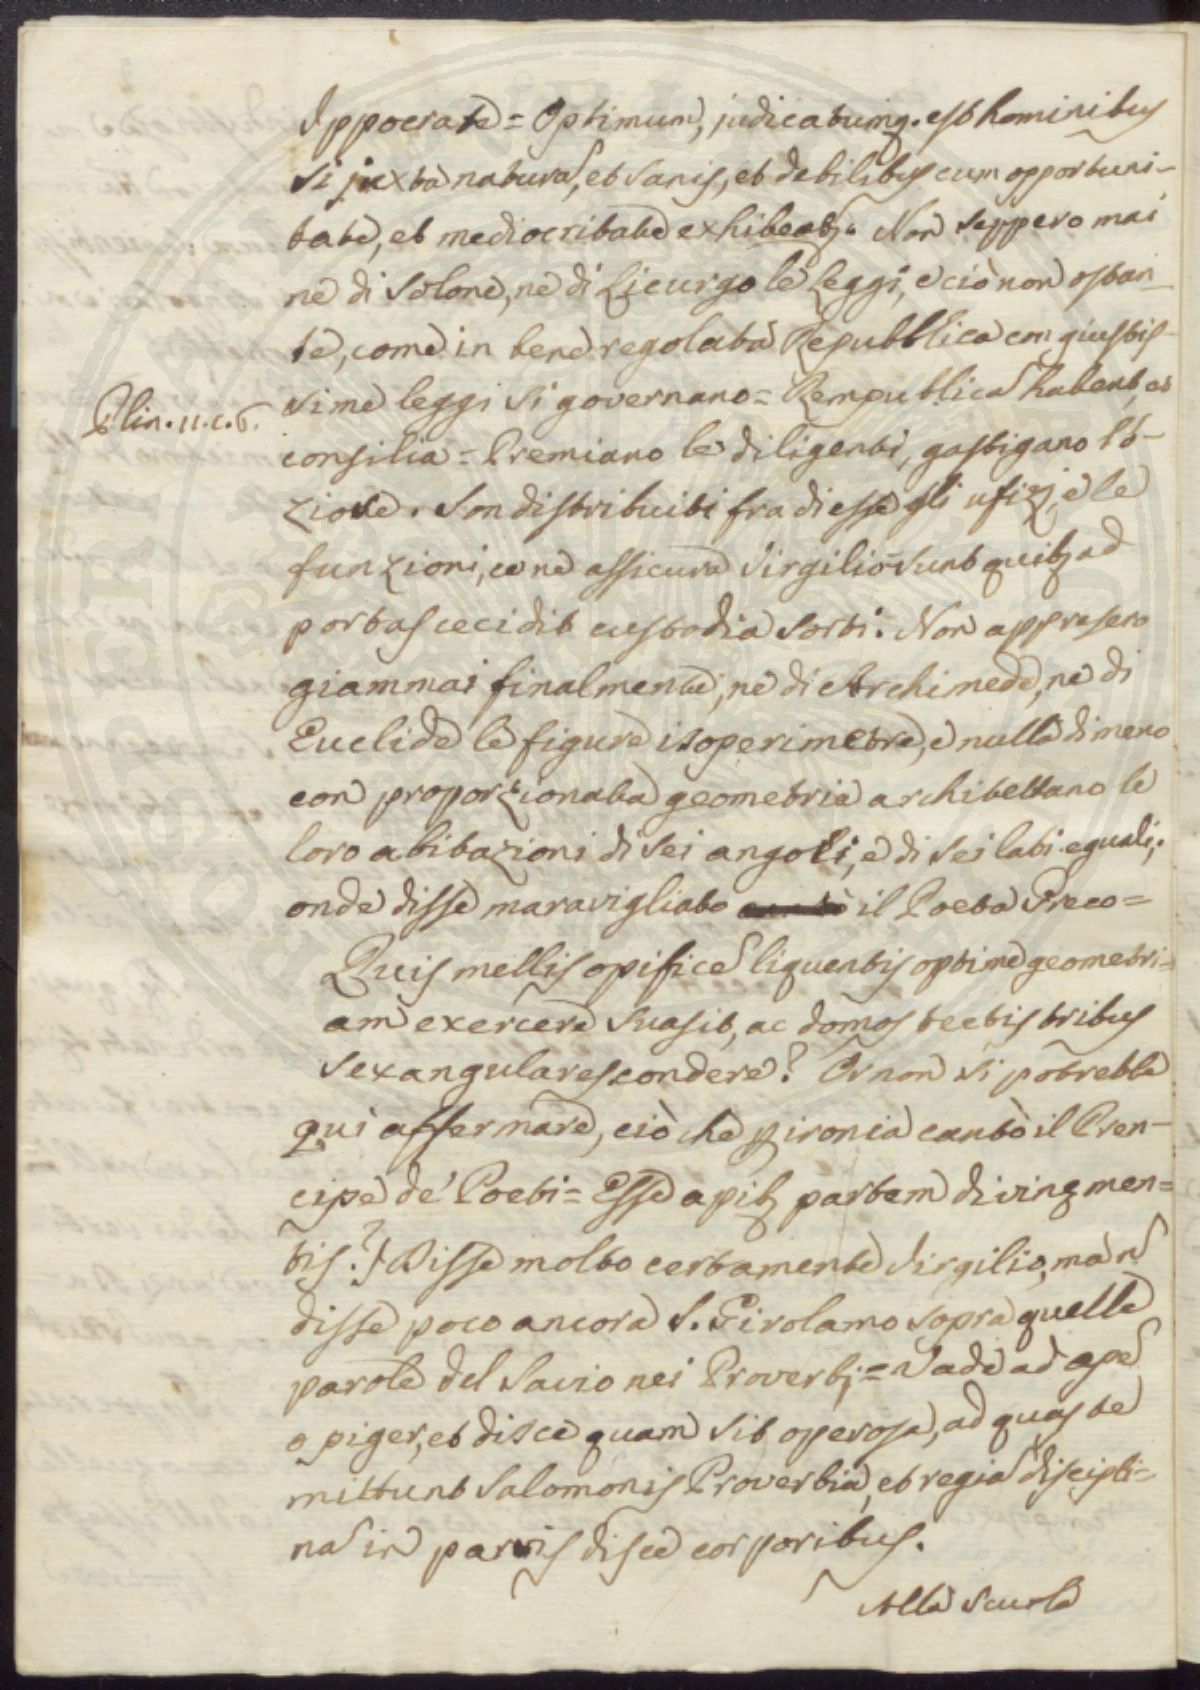 Ippocrate = Optimum, judicatumq. est hominibus
si juxta naturã, et sanis, et debilibus cum opportuni-
tate, et mediocritate exhibeatr. Non seppero mai
ne di Solone, ne di Licurgo le leggi, e ciò non ostan-
te, come in bene regolata Repubblica con giustis-
Plin. 11. c. 6.
sime leggi si governano = Rempublicã habent, et
consilia = Premiano le diligenti, gastigano l'o-
ziose. Son distribuiti fra di esse gli ufizj, e le
funzioni, ce ne assicura Virgilio = Sunt quibs ad
portas cecidit custodia sorti. Non appresero
giammai finalmente, ne di Archimede, ne di
Euclide le figure isoperimetre, e nulla di meno
con proporzionata geometria architettano le
loro abitazioni di sei angoli, e di sei lati eguali;
onde disse maravigliato il Poeta Greco =
Quis mellis opifices liquentis optime geometri-
am exercere suasit, ac domos tectis tribus
sexangulares condere? Or non si potrebbe
qui affermare, ciò che p ironia cantò il Pren-
cipe de' Poeti = Esse apibs partem divinę men-
tis? Disse molto certamente Virgilio, ma nõ
disse poco ancora S. Girolamo sopra quelle
parole del Savio nei Proverbj = Vade ad apẽ
o piger, et disce quam sit operosa, ad quas te
mittunt Salomonis Proverbia, et regiã discipli-
nã in parvis disce corporibus.
Alla scuola